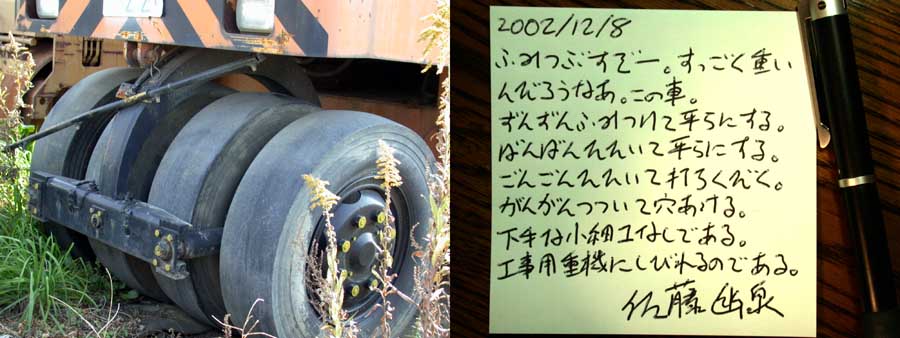 22
2002/12/8
ふみつぶすぞー。すっごく重い
んだろうなあ。この車。
ずんずんふみつけて平らにする。
ばんばんたたいて平らにする。
ごんごんたたいて打ちくだく。
がんがんつついて穴あける。
下手な小細工なしである。
工事用重機にしびれるのである。
佐藤幽泉